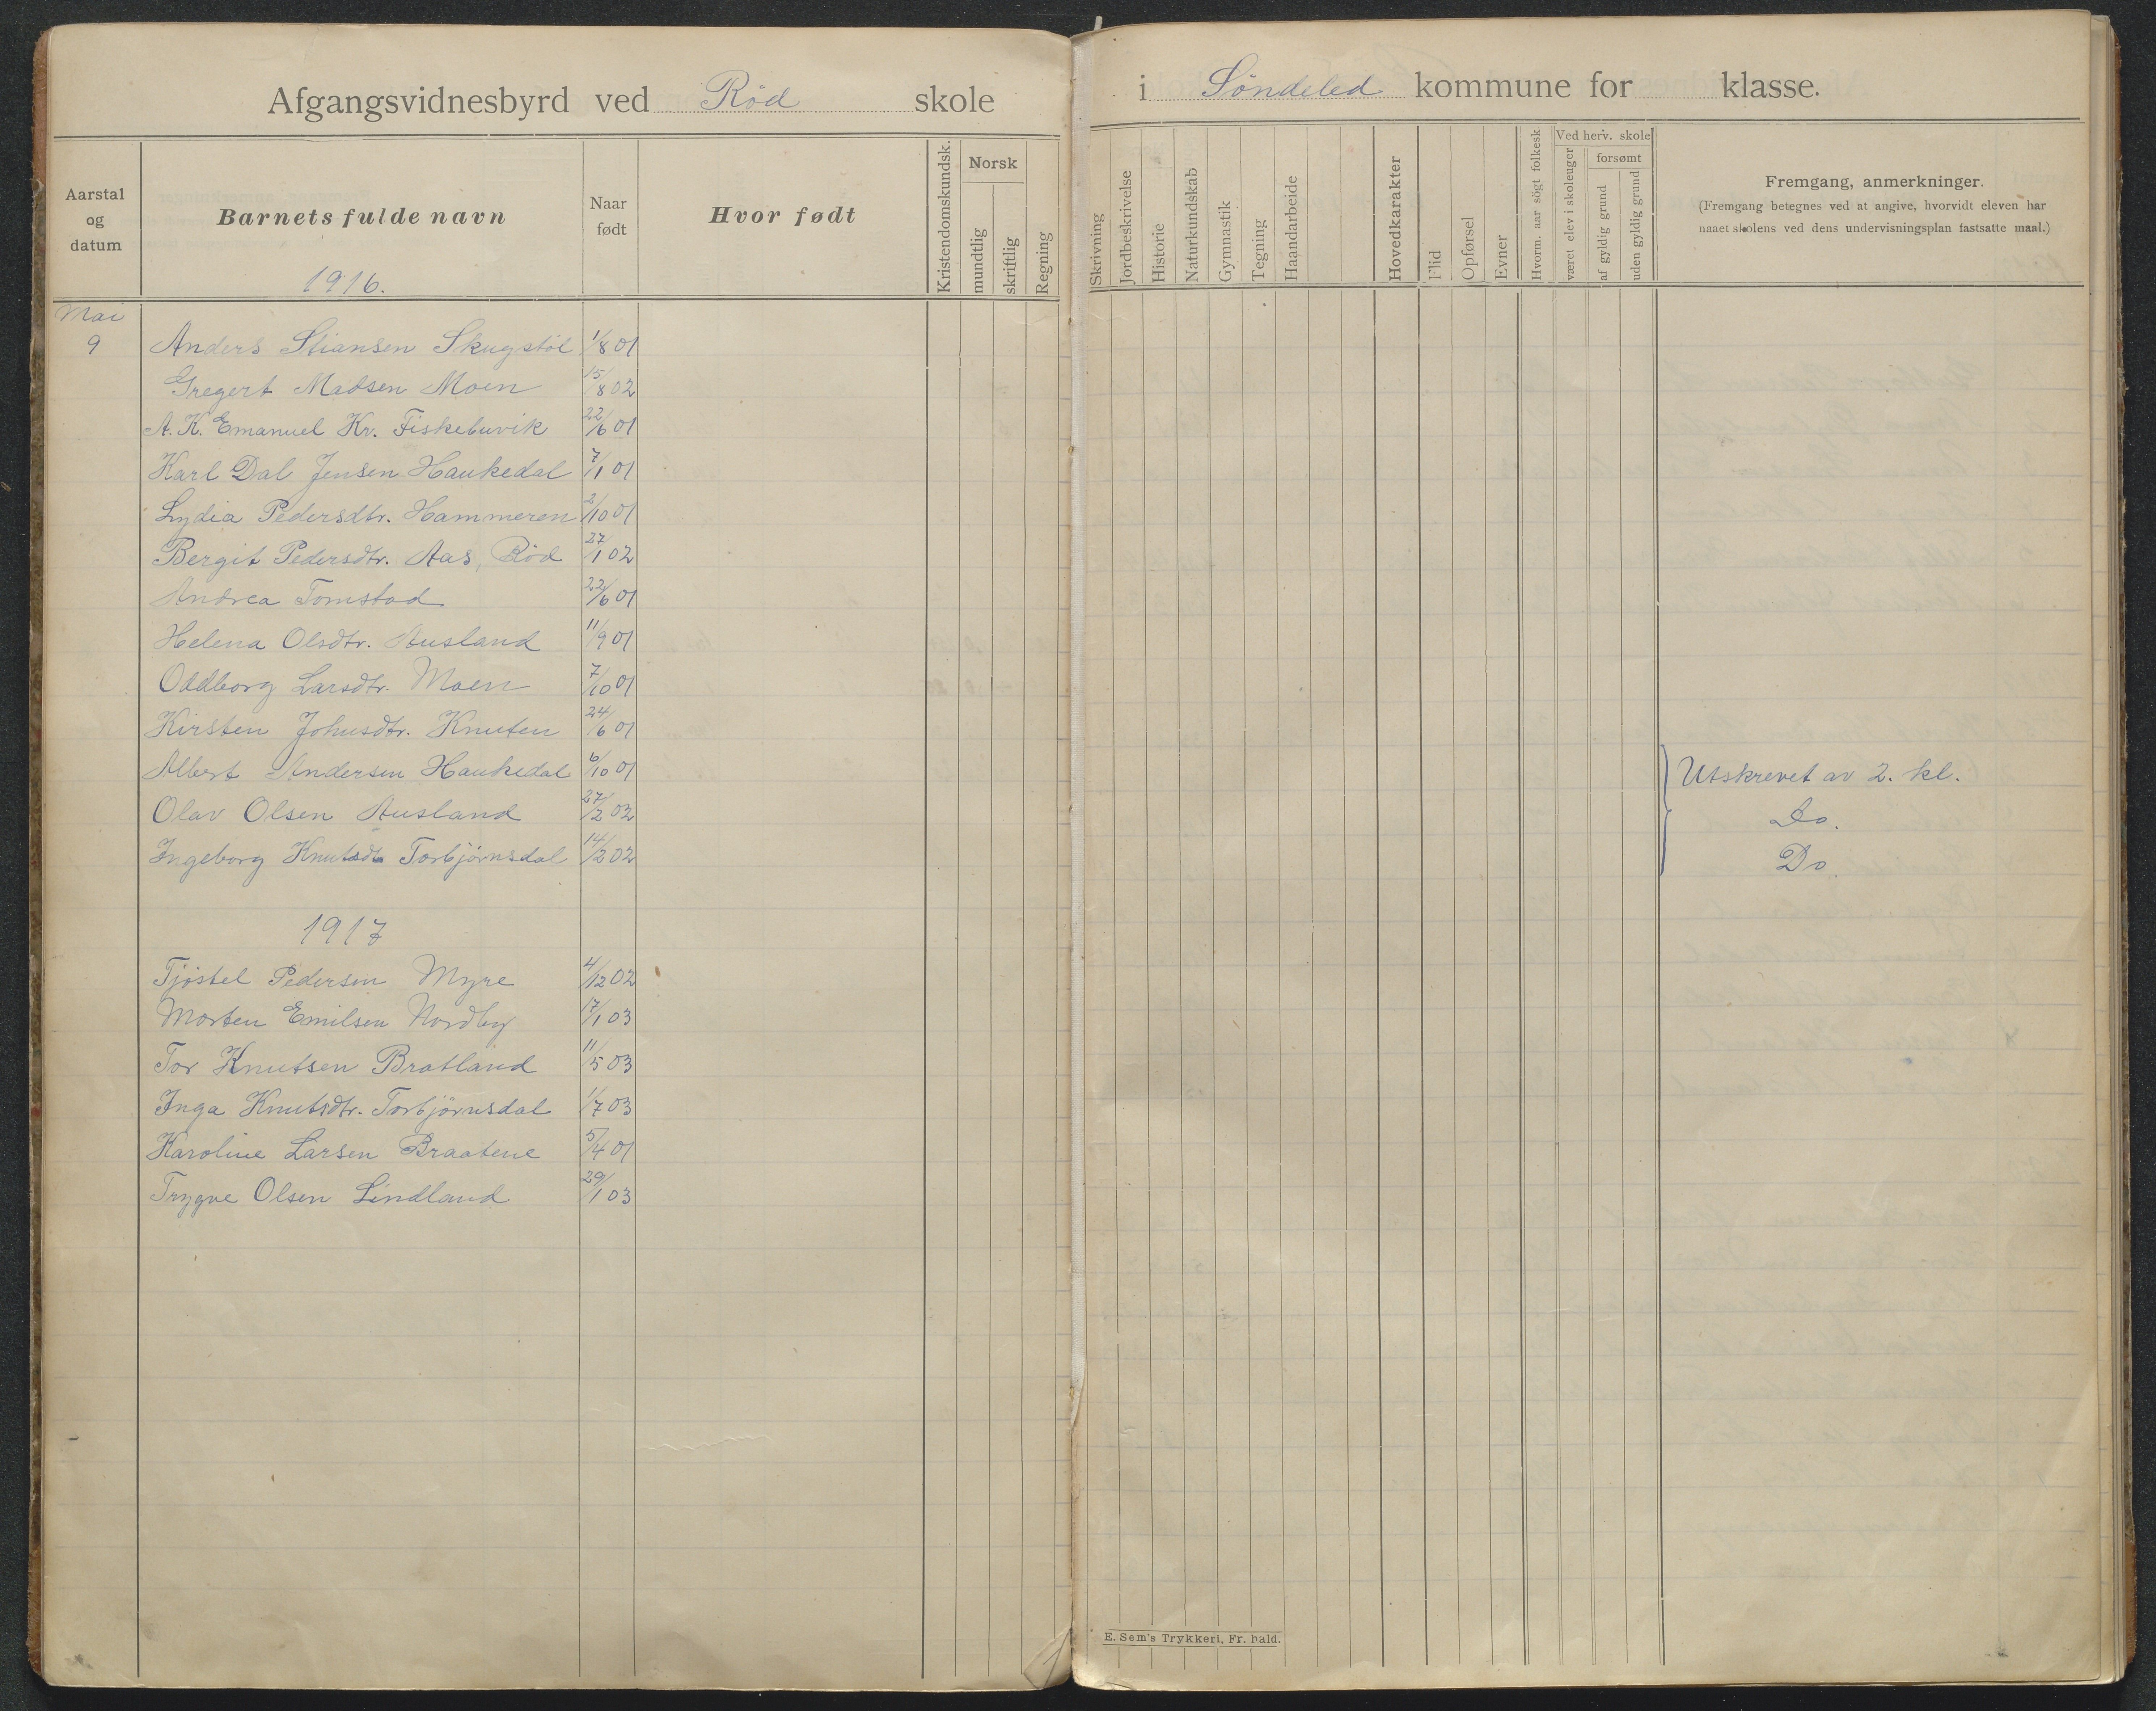 Afgangsvidnesbyrd ved Röd skole
i Söndeled kommune for klasse.
Aarstal og datum
Barnets fulde navn
Naar født
Hvor født
Kristendomskundsk.
Norsk
mundtlig
skriftlig
Regning
Skrivning
Jordbeskrivelse
Historie
Naturkundskab
Gymnastik
Tegning
Haandarbeide
Hovedkarakter
Flid
Opførsel
Evner
Hvorm. aar søgt folkesk
Ved herv. skole
været elev i skoleuger
forsømt
af gyldig grund
uden gyldig grund
Fremgang, anmerkninger.
(Fremgang betegnes ved at angive, hvorvidt eleven har
naaet skolens ved dens undervisningsplan fastsatte maal.)
1916.
Mai
9 Anders Stiansen Skugstöl 1/8 01
Gregert Madsen Moen 15/8 02
A. K. Emanuel Kr. Fiskebuvik 22/6 01
Karl Dal Jensen Haukedal 7/1 01
Lydia Pedersdtr. Hammeren 2/10 01
Bergit Pedersdtr. Aas, Röd 27/1 02
Andrea Tomstad 22/6 01
Helena Olsdtr. Ausland 11/9 01
Oddborg Larsdtr. Moen 7/10 01
Kirsten Johnsdtr. Knuten 24/6 01
Albert Andersen Haukedal 6/10 01 Utskrevet av 2. kl.
Olav Olsen Ausland 27/2 02 Do.
Ingeborg Knutsdt Torbjörnsdal 14/2 02 Do.
1917
Tjöstel Pedersen Myre 4/12 02
Morten Emilsen Nordby 17/1 03
Tor Knutsen Bratland 11/5 03
Inga Knutsdtr. Torbjörnsdal 1/7 03
Karoline Larsen Braatene 5/4 01
Trygve Olsen Lindland 29/1 03
E. Sem's Trykkeri, Fr. hald.